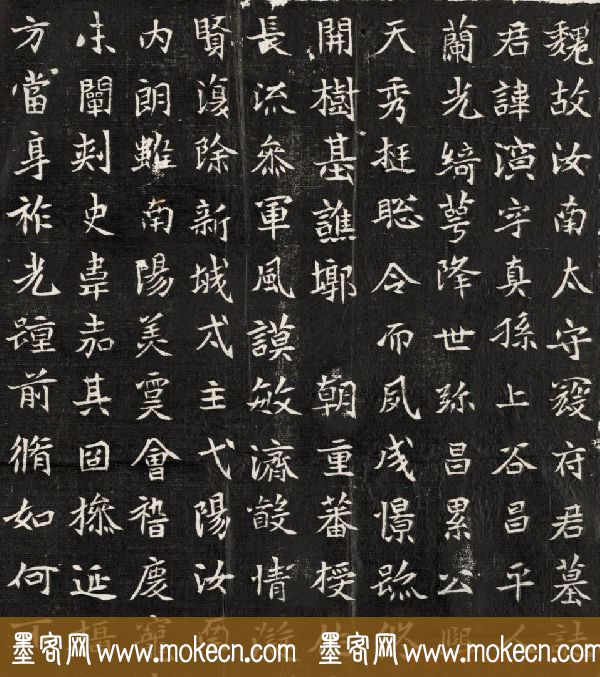 魏故汝南太守寇府君墓誌
君諱演字真孫上谷昌平人
蘭光綺萼降世弥昌累公
天秀挺聡令而夙成憬跡
開樹基譙墎 朝重蕃授
長流叅軍風謨敏濟情
賢復除新城弌主弋陽汝南
内朗雖南陽美會慶
味闡刾史韋嘉其固延
方當享祚光踵前脩如何
墨客网 www.mokecn.com 墨客网 www.mokecn.com